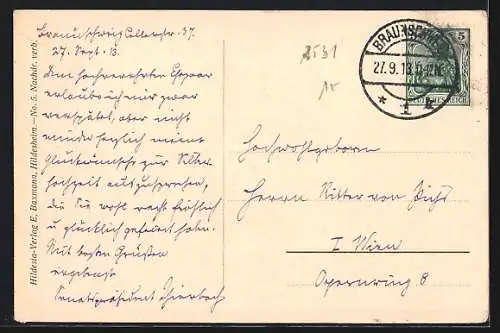 Braunschweig Cellerstr. 37.
27. Sept. 13.
Dem hochverehrten Ehepaar
erlaube ich mir zwar
verspätet, aber nicht
minder herzlich meine
Glückwünsche zur Silber
hochzeit auszusprechen,
die Sie recht fröhlich
u glücklich gefeiert haben.
Mit besten Grüßen
ergebenst
Senatspräsident
Hildesia-Verlag E. Baxmann, Hildesheim. — No. 5. Nachdr. verb.
2531
15
BRAUNSCHWEIG
27.9.13.
* 1
5
DEUTSCHES REICH
Hochwohlgeboren
Herrn Ritter von
I Wien
Opernring 8